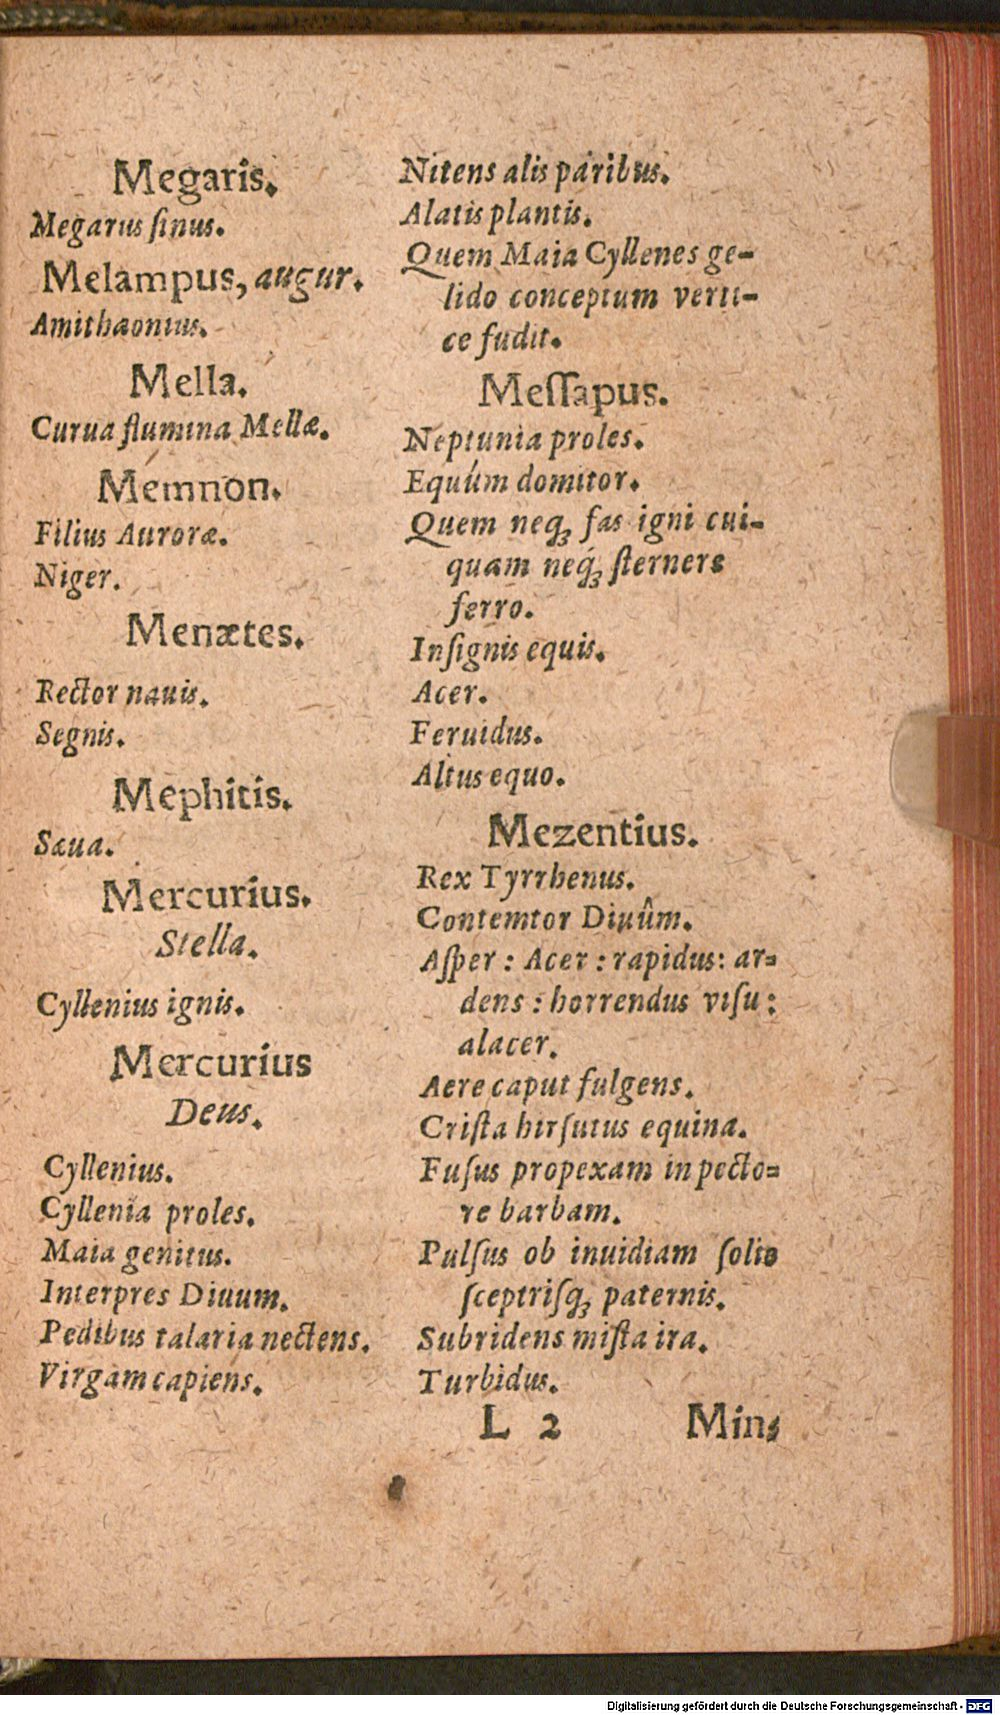 Megaris.
Megarus ſinus.
Melampus, augur.
Amithaonius.
Mella.
Curua flumina Mellæ.
Memnon.
Filius Auroræ.
Niger.
Menætes.
Rector nauis.
Segnis.
Mephitis.
Sæua.
Mercurius.
Stella.
Cyllenius ignis.
Mercurius
Deus.
Cyllenius.
Cyllenia proles.
Maia genitus.
Interpres Diuum.
Pedibus talaria nectens.
Virgam capiens.
Nitens alis paribus.
Alatis plantis.
Quem Maia Cyllenes ge-
lido conceptum verti-
ce fudit.
Meſſapus.
Neptunia proles.
Equúm domitor.
Quem neqꝫ fas igni cui-
quam neq́ꝫ ſternere
ferro.
Inſignis equis.
Acer.
Feruidus.
Altus equo.
Mezentius.
Rex Tyrrhenus.
Contemtor Diuûm.
Aſper : Acer : rapidus: ar-
dens : horrendus viſu :
alacer.
Aere caput fulgens.
Criſta hirſutus equina.
Fuſus propexam in pecto-
re barbam.
Pulſus ob inuidiam ſolio
ſceptriſqꝫ paternis.
Subridens miſta ira.
Turbidus.
L 2 Min-
Digitalisierung gefördert durch die Deutsche Forschungsgemeinschaft - DFG